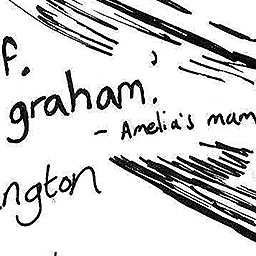 f.
graham.
- Amelia's mam
ngton